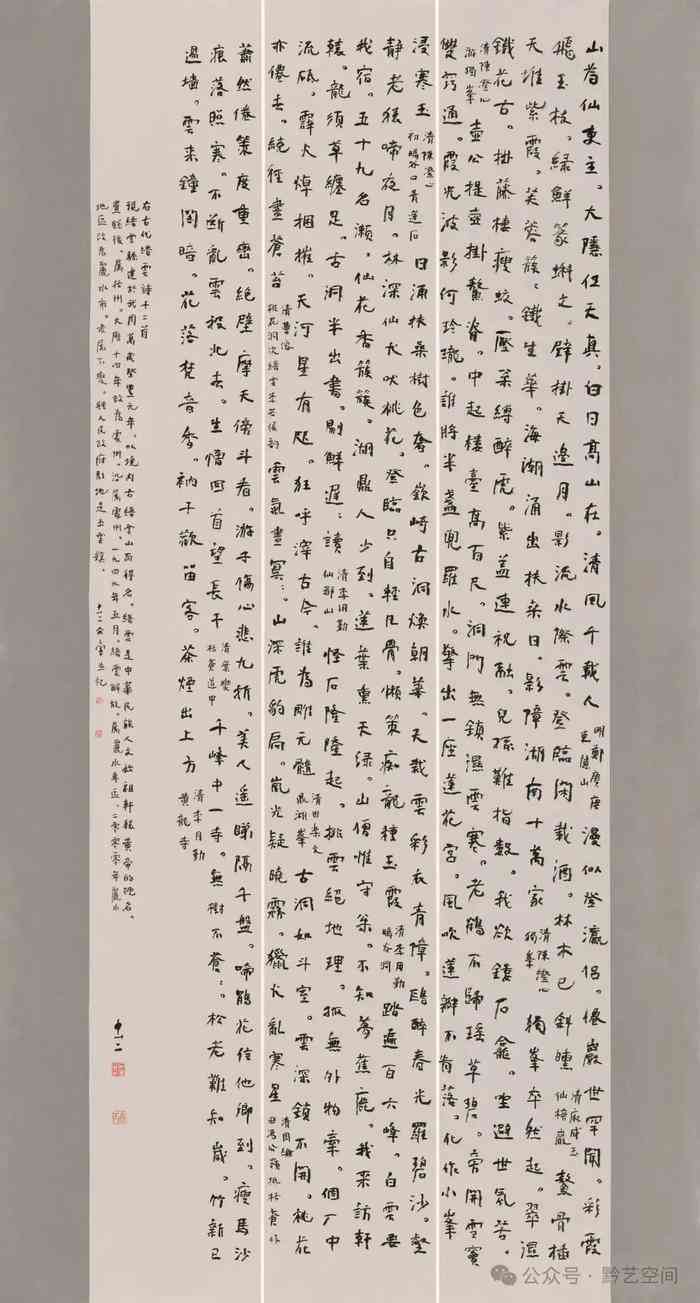 山为仙吏主。大隐任天真。白日高山在。清风千载人 明郑赓唐 吏隐山 漫似登瀛侣。倦岩世罕闻。彩霞
飞玉枝。绿鲜篆蝌文。壁挂天边月。影流水际云。登临闲载酒。林木已斜曛 清 仙榜岩 鳌骨插
天堆紫霞。芙蓉簇簇铁生华。海潮涌出扶桑日。影障湖南十万家 清陈澄心 独峰 独峰卒然起。翠湿
铁花古。挂藤栖瘦蛟。压叶缚醉虎。紫盖连祝融。儿孙难指数。我欲镂石龛。坐避世氛苦。
清陈澄心 游独峰 壶公提壶挂鳌脊。中起楼台高百尺。洞门无锁湿云寒。老鹤不归瑶草碧。旁开雪窦
双窍通。霞光波影何玲珑。谁将半盏兜罗水。擎出一座莲花宫。风吹莲瓣不肯落。化作小峰
浸寒玉 清陈澄心 初旸谷口 日涌扶桑树色奢。嵚崎古洞焕朝华。天裁云彩衣青障。醉春光罗碧沙。壑
静老猿啼夜月。林深仙犬吠桃花。登临只自轻凡骨。懒策痴龙种玉霞 清李月勤 旸谷洞 踏遍百六峰。白云要
我宿。五十九名濑。仙花香簇簇。湖鼎人少到。莲叶熏天绿。山便惟守朱。不知梦蕉鹿。我来访轩
辕。龙须草缠足。古洞半出书。剔鲜迟迟读 清李月勤 仙都山 怪石隆隆起。排云绝地理。孤无外物牵。个厂中
流砥。霹火焯捆摧。天河星有咫。狂呼滓古今。谁为雕元髓 清田 文 鼎湖峰 古洞如斗室。云深锁不开。桃花
亦仙去。绕径尽苍苔 清曹溶 桃花洞次缙云 韵 云气昼冥冥。山深虎豹扃。岚光疑晓雾。猎犬乱寒星 清周 冯公岭
萧然倦策度重峦。绝壁摩天傍斗看。游子伤心悲九折。美人遥睇隔千盘。啼鹃花信他乡到。瘦马沙
痕落照寒。不断乱云投北去。生憎回首望长干 清叶燮 千峰中一寺。无树不苍苍。松老难知岁。竹新已
过墙。云来钟阁暗。花落梵音香。衲子欢留客。茶烟出上方 清李月勤 黄龙寺
右古代缙云诗十二首
现缙云县建于武周万岁登丰元年。以境内古缙云山而得名。缙云是中华民族人文始祖轩辕黄帝的号名。
置县后。属括州。大历十四年改为处州。沿属处州。一九四九年五月。缙云解放。属丽水专区。二〇〇〇年丽水
地区改为丽水市。隶属不变。县人民政府驻地是五云镇。
十二
公众号·黔艺空间